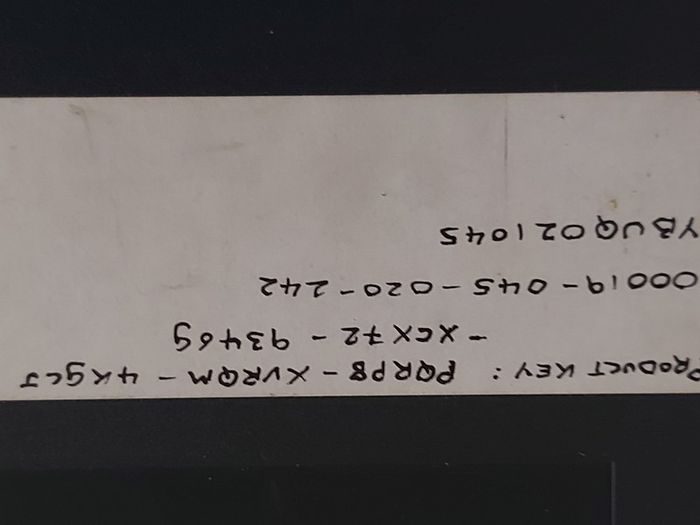 PRODUCT KEY: PQRP8-XVRQM-4KGCJ
-XCX72-9346G
00019-045-020-242
YBUQ021045